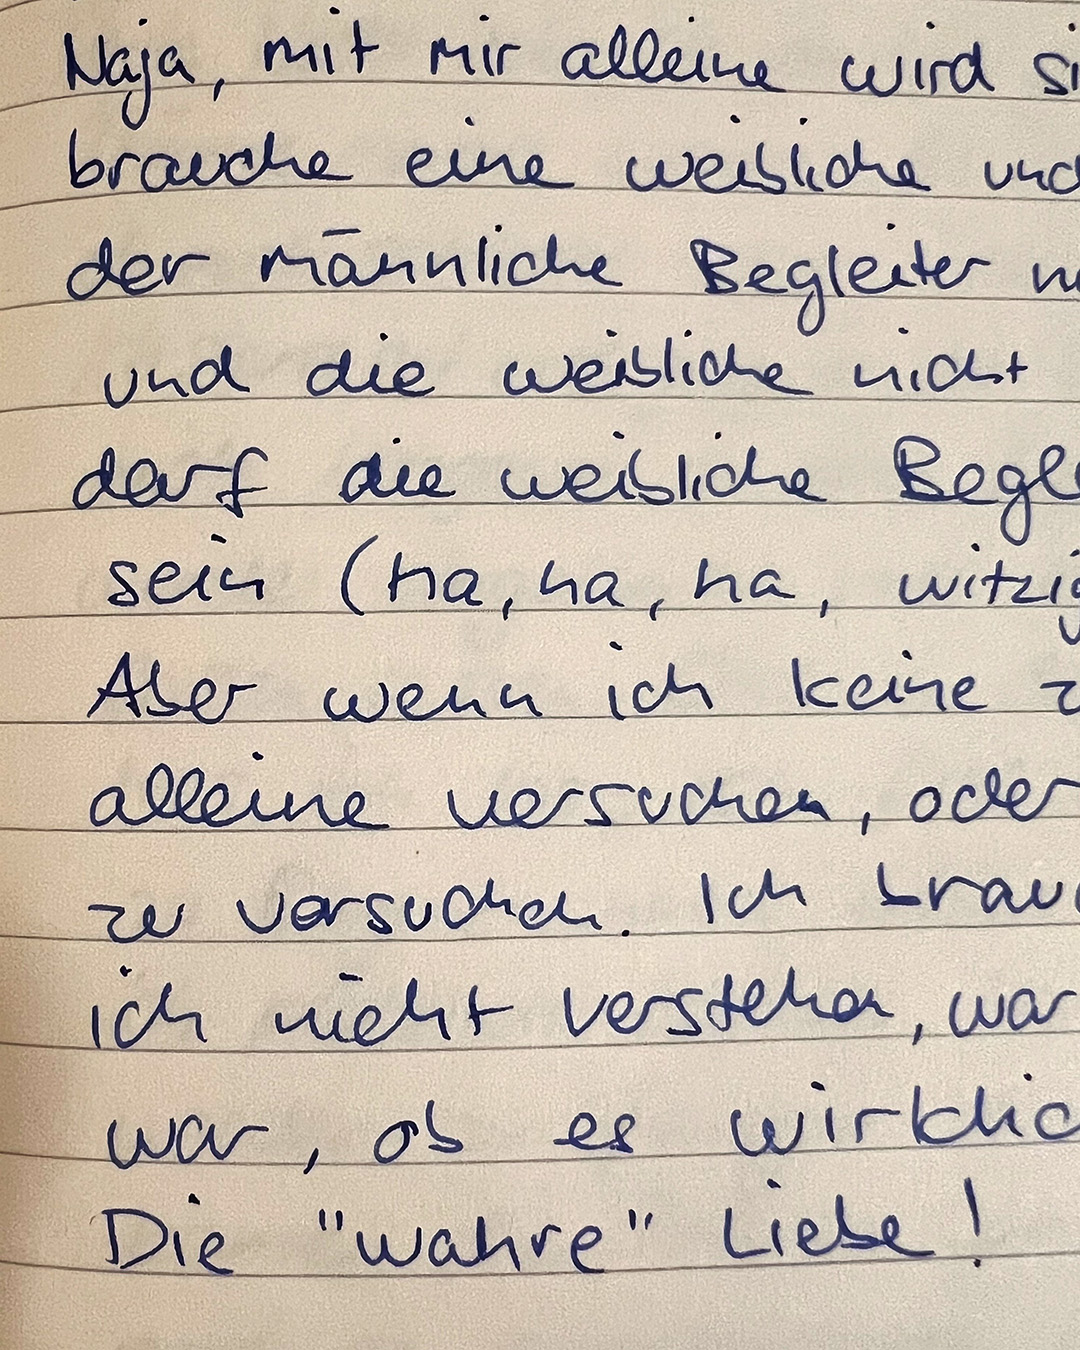 Naja, mit mir alleine wird si
brauche eine weibliche und
der männliche Begleiter
und die weibliche nicht
darf die weibliche Begle
sein (ha, ha, ha, witzig
Aber wenn ich keine z
alleine versuchen, oder
zu versuchen. Ich brau
ich nicht verstehen, war
war, ob es wirklic
Die "wahre" Liebe!